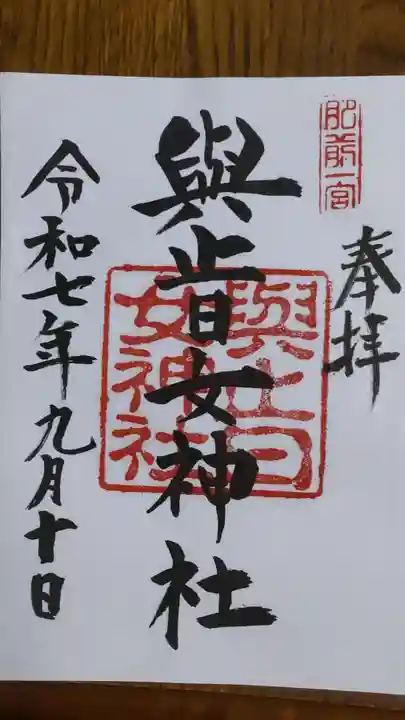 肥前一宮
奉拝
與止日女神社
與止日女神社
令和七年九月十日